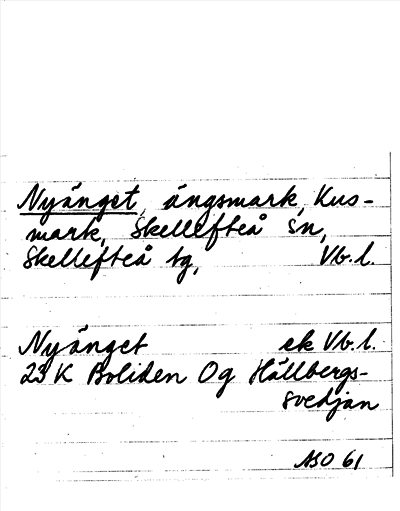 Nyänget, ängsmark, Kus-
mark, Skellefteå sn,
Skellefteå tg, Vb.l.
Nyänget ek Vb.l.
23 K Boliden Og Hällbergs-
svedjan
ASO 61